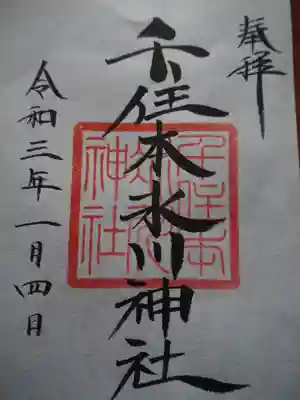 奉拝
千住本氷川神社
令和三年一月四日
千住本
氷川
神社